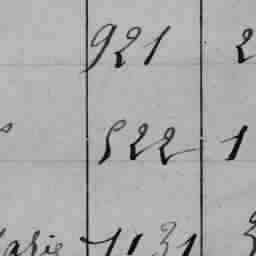 921 2
522 1
arie 1131